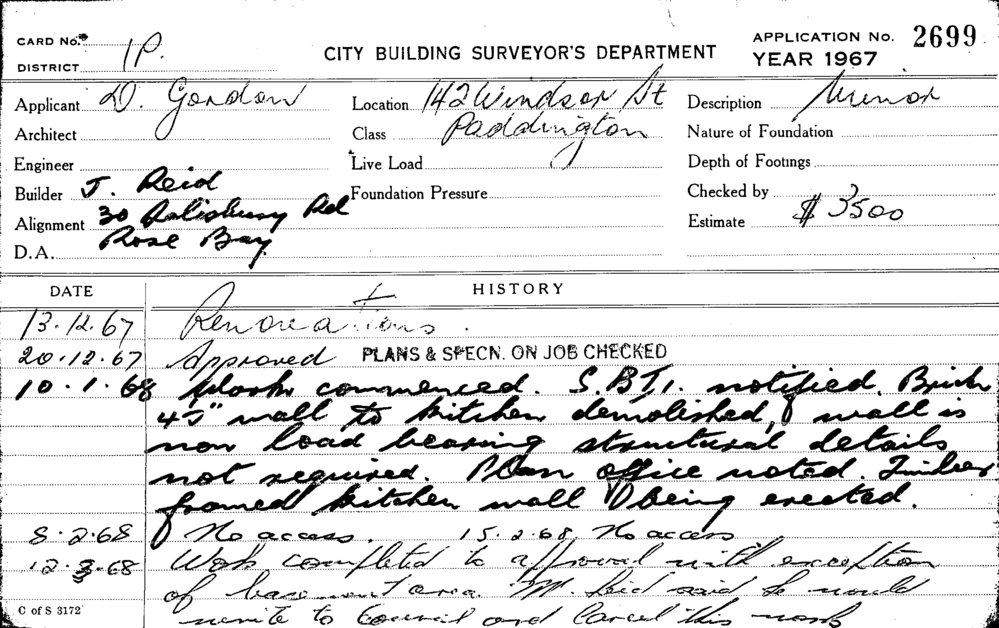 CARD No.
DISTRICT 1P.
CITY BUILDING SURVEYOR'S DEPARTMENT
APPLICATION No. 2699
YEAR 1967
Applicant D. Gordon
Architect
Engineer
Builder J. Reid
Alignment 30 Salisbury Rd
D.A. Rose Bay
Location 142 Windsor St
Class Paddington
Live Load
Foundation Pressure
Description Minor
Nature of Foundation
Depth of Footings
Checked by
Estimate $ 3500
DATE HISTORY
13.12.67 Renovations.
20.12.67 Approved PLANS & SPECN. ON JOB CHECKED
10.1.68 Work commenced. S.B.I. notified. Brick
4½" wall to kitchen demolished, wall is
non load bearing structural details
not required. Plan office noted. Timber
framed kitchen wall being erected.
8.2.68 No access. 15.2.68 No access
12.3.68 Work completed to approval with exception
of basement area. Mr. Reid said he would
write to Council and cancel this work
C of S 3172